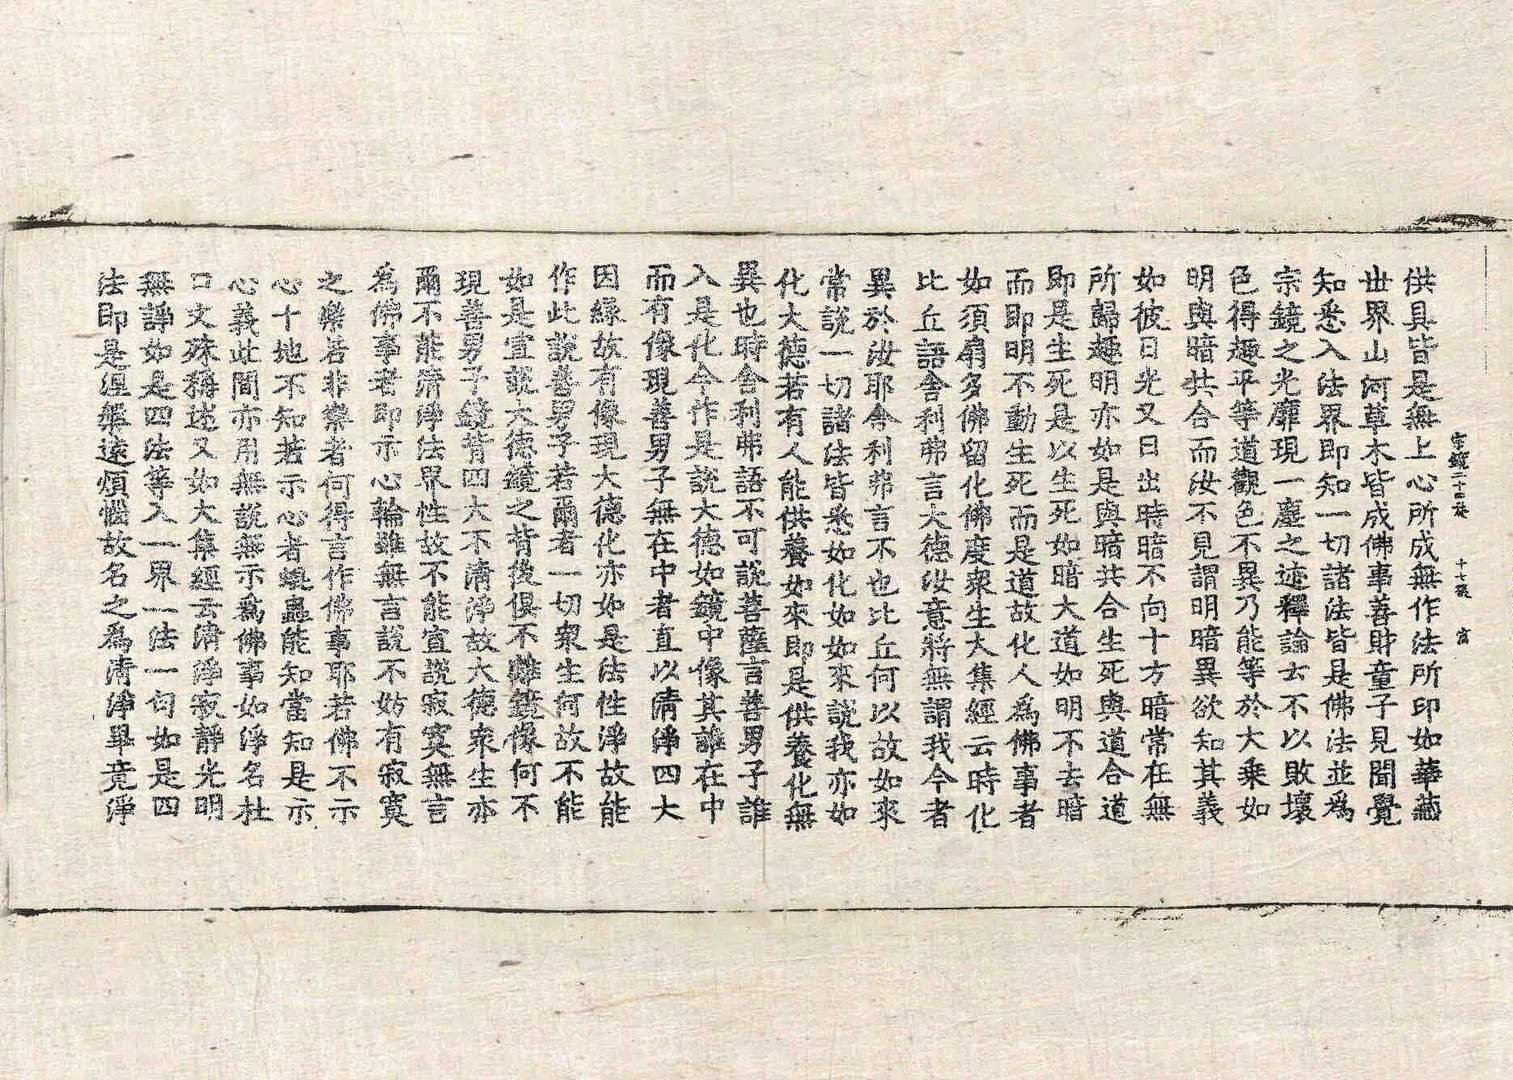 宗鏡二十四卷 十七張 宣
供具皆是無上心所成無作法所印如華藏
世界山河草木皆成佛事善財童子見聞覺
知悉入法界即知一切諸法皆是佛法並爲
宗鏡之光靡現一塵之迹釋論云不以敗壞
色得趣平等道觀色不異乃能等於大乗如
明與暗共合而汝不見謂明暗異欲知其義
如彼日光又日出時暗不向十方暗常在無
所歸趣明亦如是與暗共合生死與道合道
即是生死是以生死如暗大道如明不去暗
而即明不動生死而是道故化人爲佛事者
如須扇多佛留化佛度衆生大集經云時化
比丘語舎利弗言大德汝意將無謂我今者
異於汝耶舎利弗言不也比丘何以故如來
常說一切諸法皆悉如化如如來說我亦如
化大德若有人能供養如來即是供養化無
異也時舎利弗語不可說菩薩言善男子誰
入是化今作是說大德如鏡中像其誰在中
而有像現善男子無在中者直以清淨四大
因縁故有像現大德化亦如是法性淨故能
作此說善男子若爾者一切衆生何故不能
如是宣說大德鏡之背後俱不離鏡像何不
現善男子鏡背四大不清淨故大德衆生亦
爾不能清淨法界性故不能宣說寂寞無言
爲佛事者即示心輪雖無言說不妨有寂寞
之樂若非樂者何得言作佛事耶若佛不示
心十地不知若示心者蜫蟲能知當知是示
心義此間亦用無說無示爲佛事如淨名杜
口文殊稱述又如大集經云清淨寂靜光明
無諍如是四法等入一界一法一句如是四
法即是涅槃遠煩惱故名之爲清淨畢竟淨